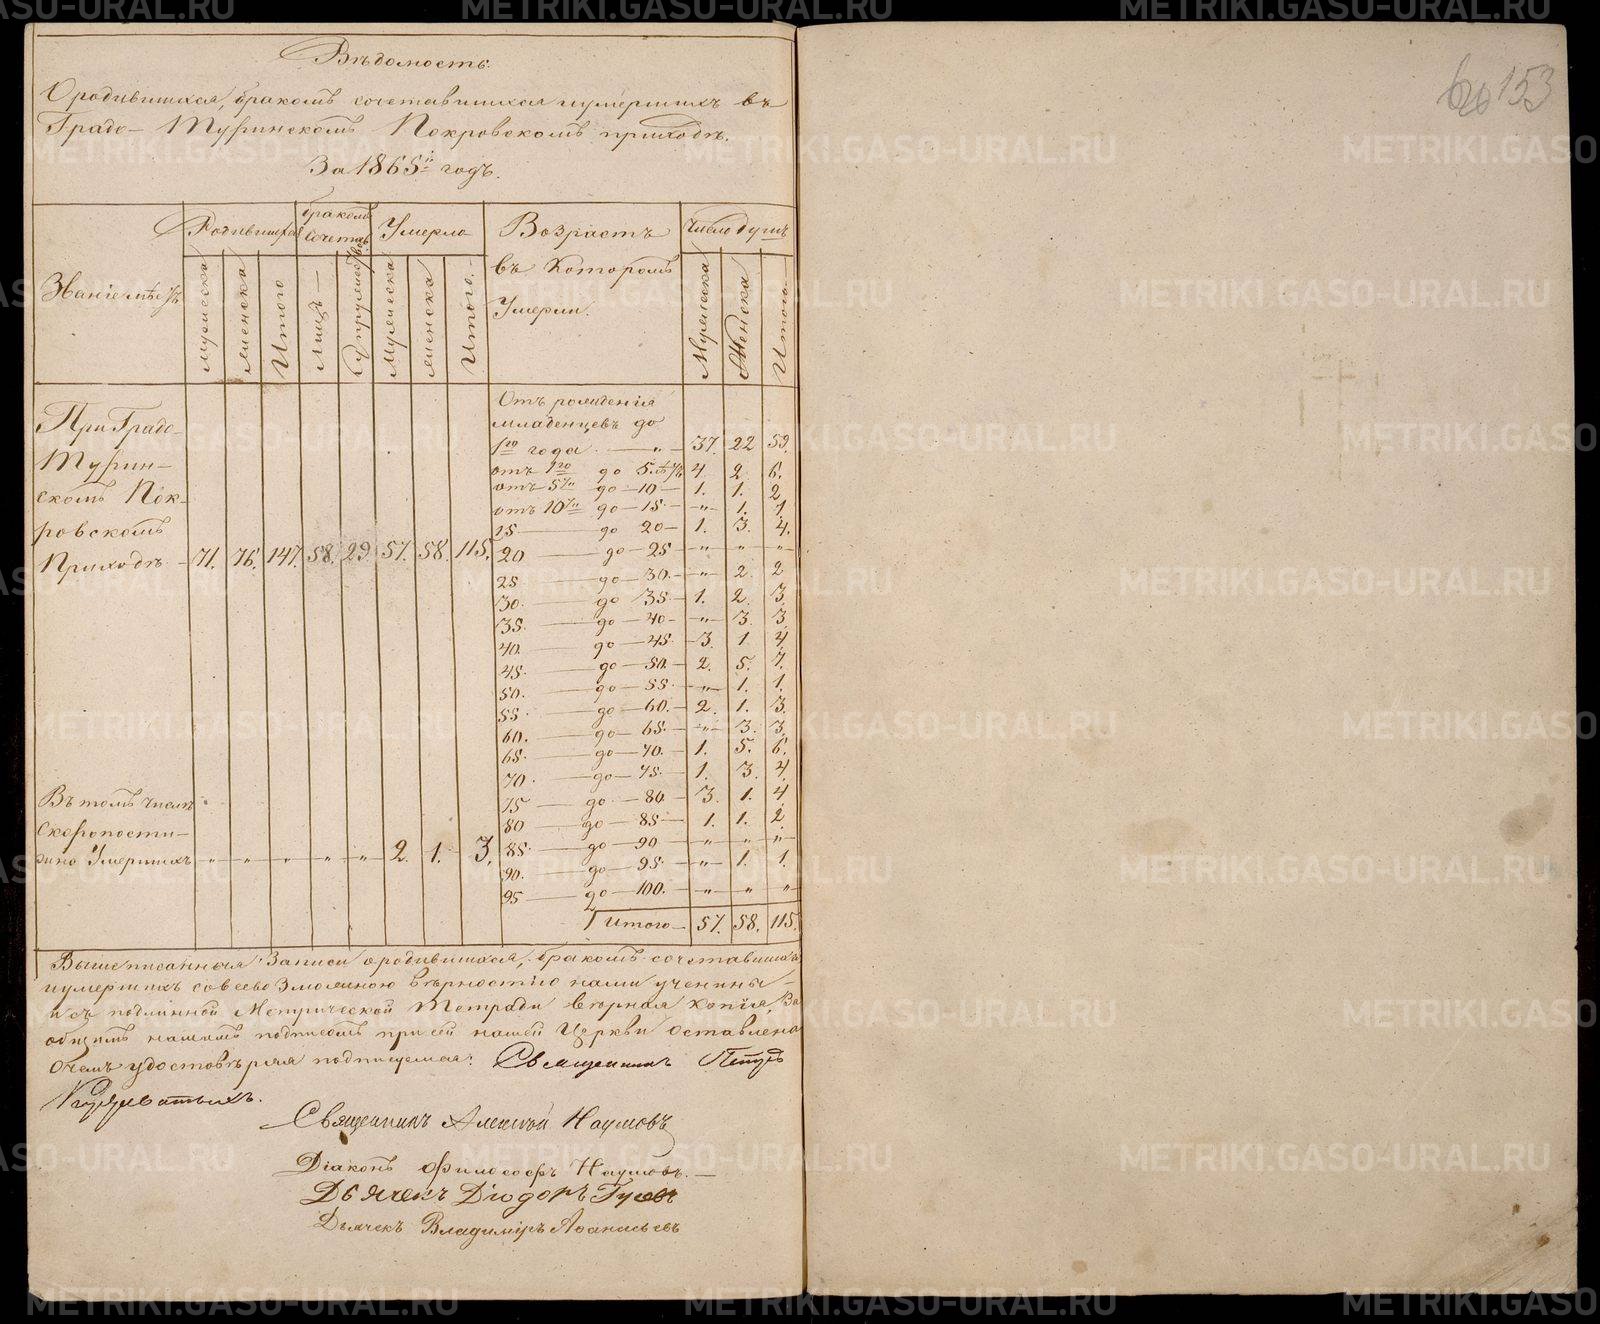 Вѣдомость
О родившихся, бракомъ сочетавшихся и умершихъ въ
Градо- Туринскомъ Покровскомъ приходѣ.
За 1865й годъ.
Званіе мѣстъ
Родившихся
бракомъ сочетав.
Умерло
Возрастъ
въ Которомъ
Умерли.
Число Душъ
мужеска
женска
Итого
лицъ
Супружествъ
Мужеска
женска
Итого.
Мужеска
Женска
Итого
При Градо-
Турин-
скомъ Пок-
ровскомъ
Приходѣ - 71. 76. 147. 58. 29. 57. 58. 115.
Въ томъ числѣ
Скоропости-
жно Умершихъ „ „ „ „ „ 2. 1. 3.
Отъ рожденія
младенцевъ до
1го года „ 37. 22 59.
отъ 1го до 5. лѣтъ 4 2. 6.
отъ 5ти до 10 1. 1. 2
отъ 10ти до 15. „ 1. 1.
15 до 20 1. 3. 4.
20 до 25 „ „ „
25 до 30. „ 2. 2
30. до 35. 1. 2. 3.
35. до 40 „ 3. 3.
40. до 45. 3. 1. 4.
45. до 50. 2. 5. 7.
50. до 55. „ 1. 1.
55. до 60. 2. 1. 3.
60. до 65. „ 3. 3.
65. до 70. 1. 5. 6.
70. до 75. 1. 3. 4.
75 до 80. 3. 1. 4.
80 до 85 1. 1. 2.
85. до 90 „ „ „
90. до 95. „ 1. 1.
95 до 100. „ „ „
Итого 57. 58. 115.
Вышеписанныя Записи о родившихся, бракомъ сочетавшихся
и умершихъ со всею возможною вѣрностію нами учинены
и съ подлинной Метрической Тетради вѣрная копія, За
общимъ нашимъ подписомъ при сей нашей Церкви оставлена
О чемъ удостовѣряя подписуемся: Священникъ Петръ
Священникъ Алексѣй Наумовъ
Діаконъ Философъ Наумовъ.
Дьячекъ Діодоръ Гусевъ
Дьячекъ Владиміръ Аѳанасьевъ
153
METRIKI.GASO-URAL.RU